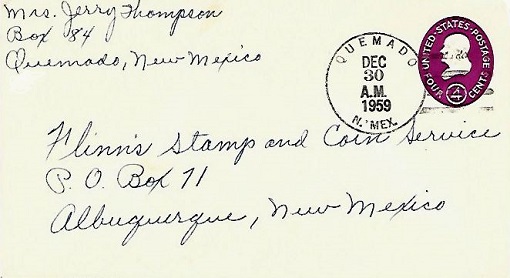 Mrs. Jerry Thompson
Box 84
Quemado, New Mexico
QUEMADO
DEC
30
A.M.
1959
N. MEX.
UNITED·STATES·POSTAGE
FOUR 4 CENTS
Flinn's Stamp and Coin Service
P. O. Box 71
Albuquerque, New Mexico